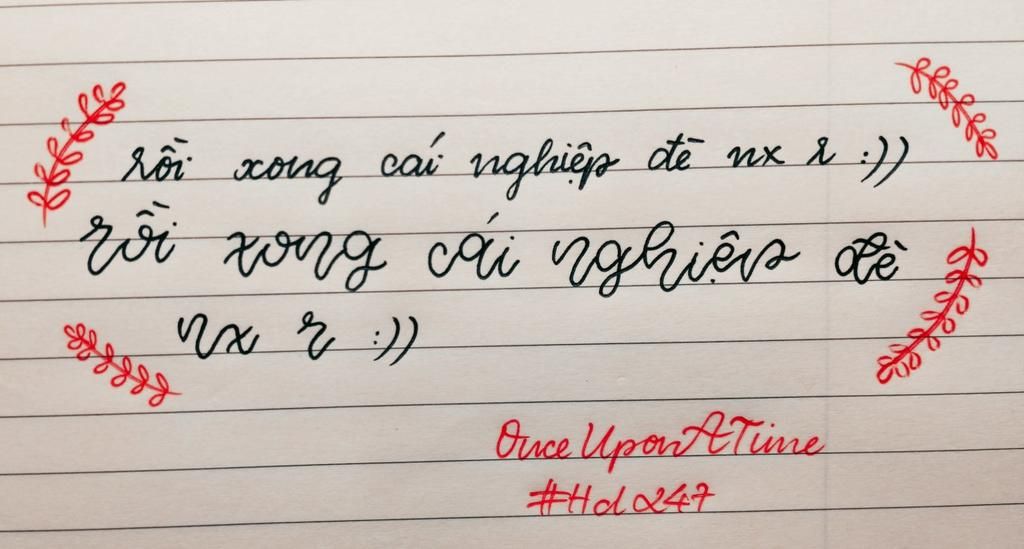 rồi xong cái nghiệp đè nx r :))
rồi xong cái nghiệp đè
nx r :))
OnceUponATime
#Hdα247